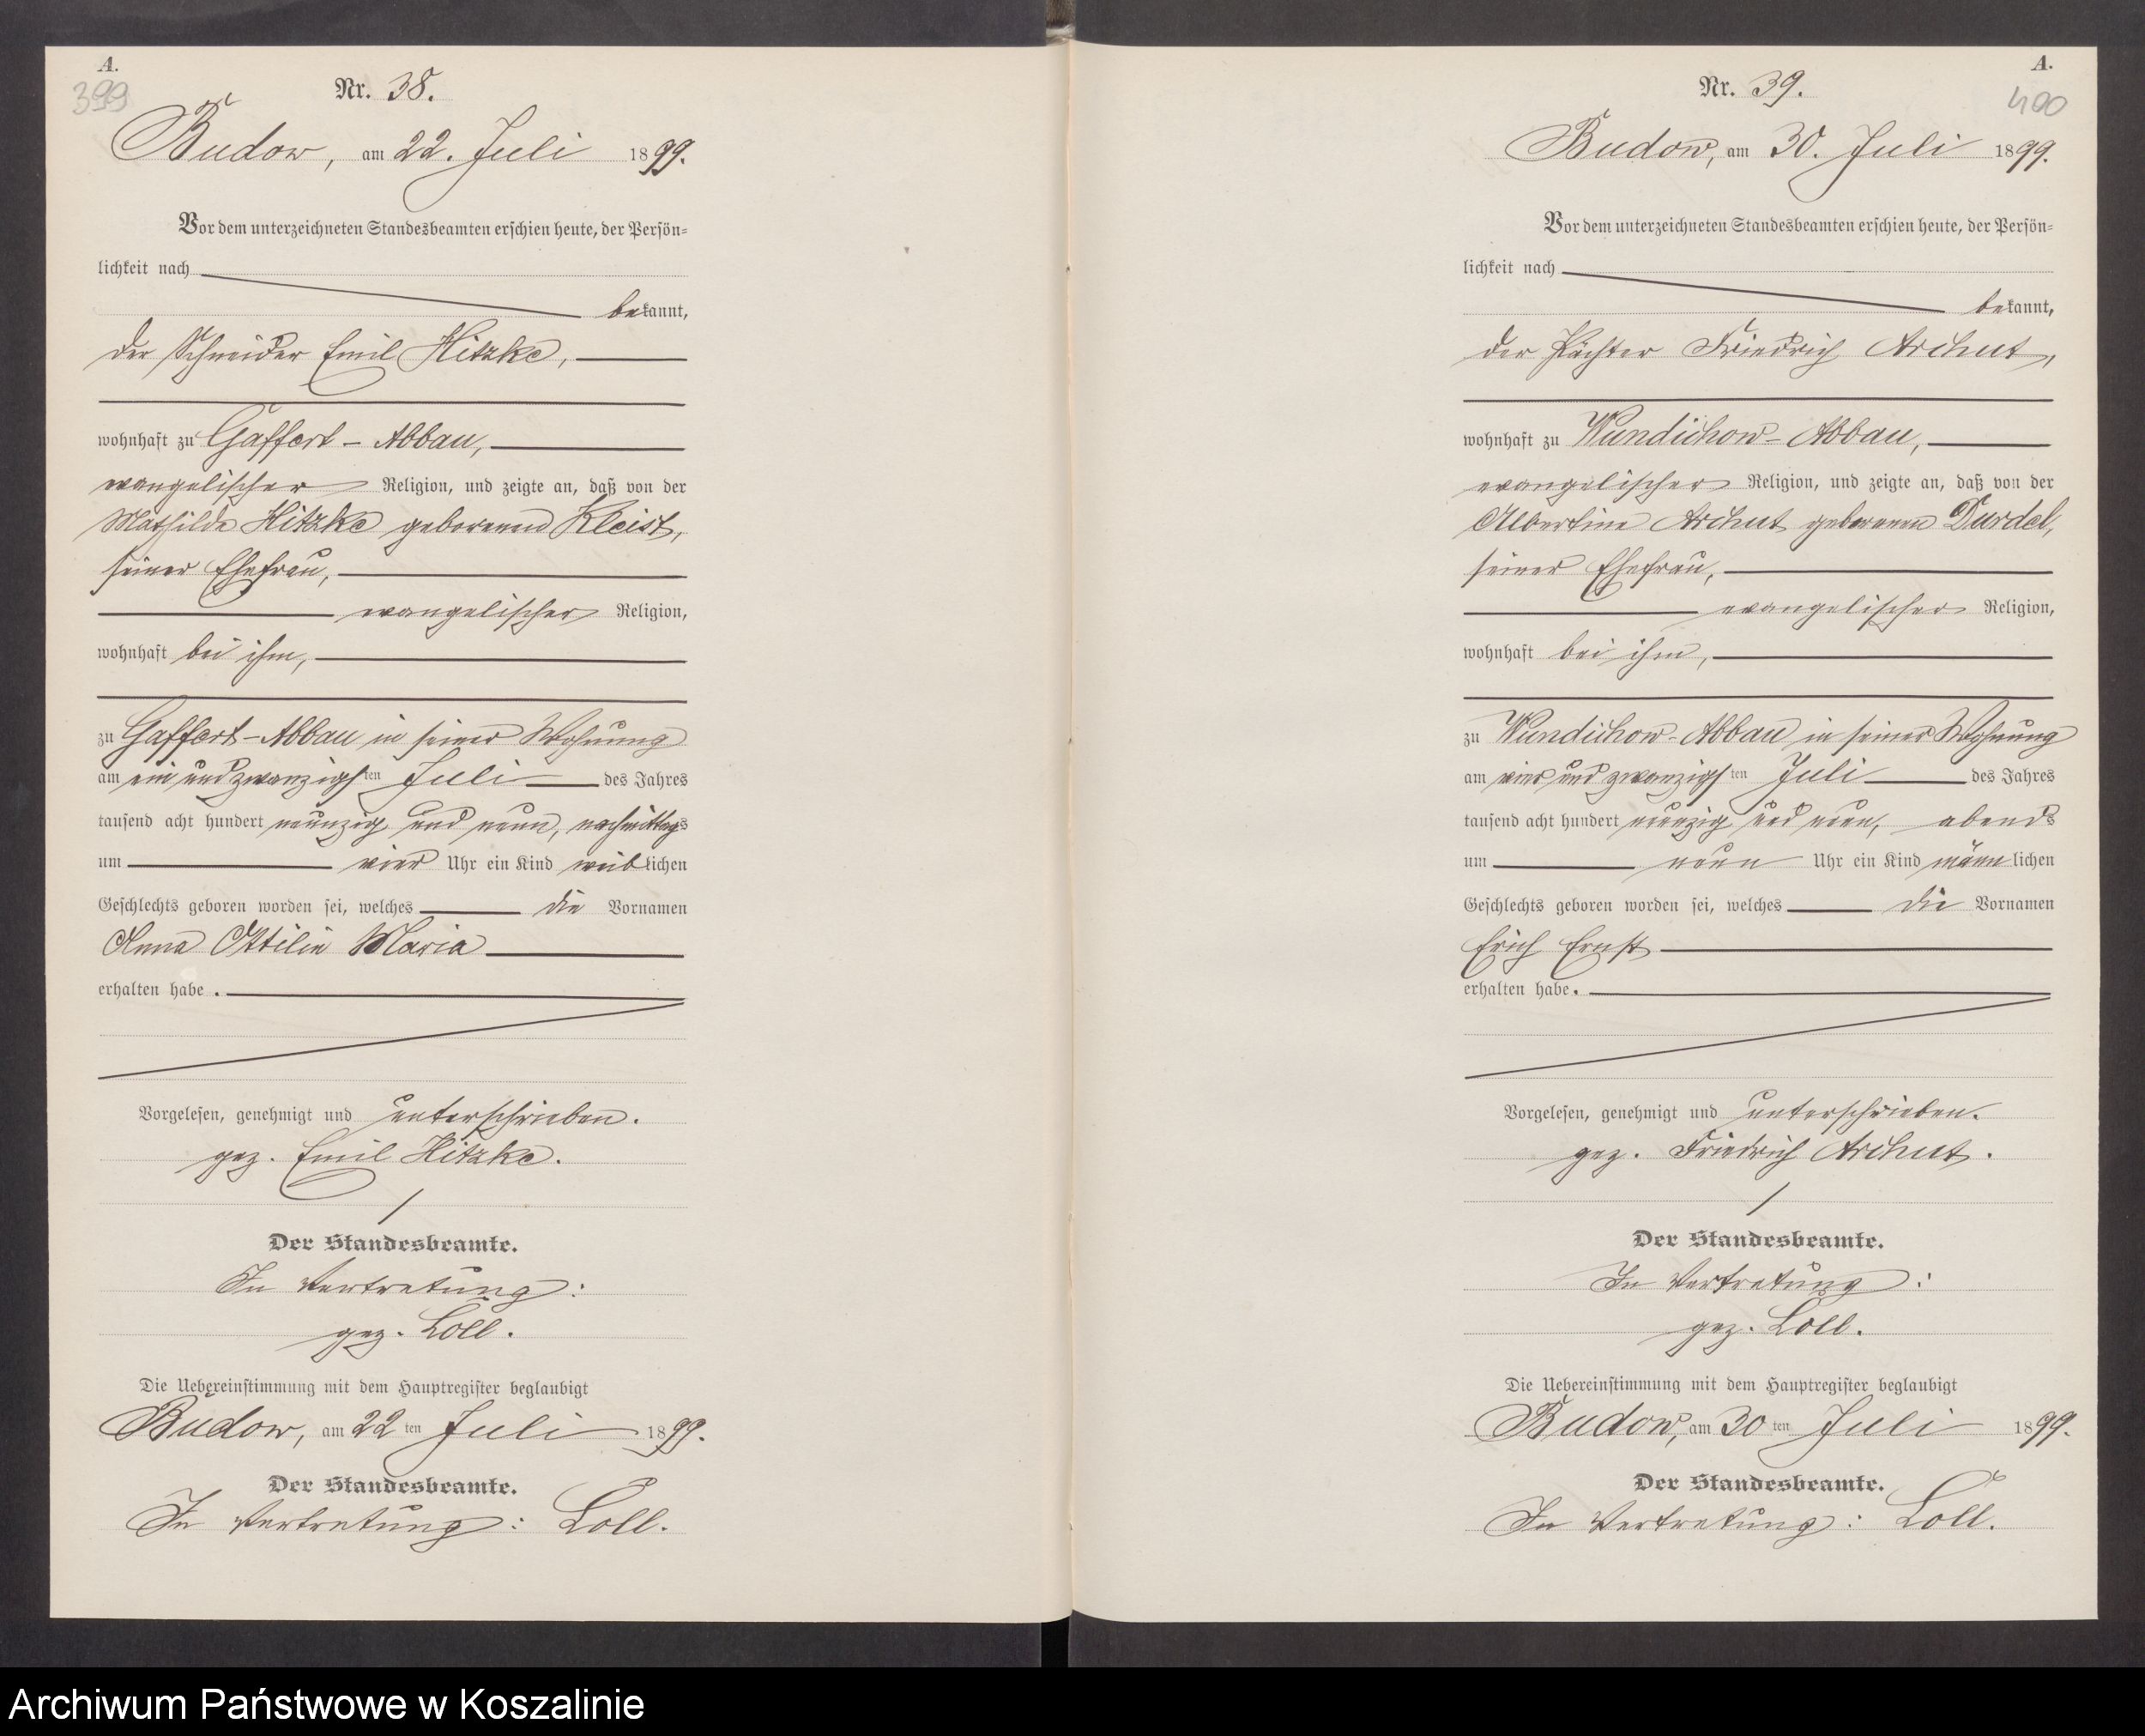 A.
399
Nr. 38.
Budow, am 22. Juli 1899.
Vor dem unterzeichneten Standesbeamten erschien heute, der Persön-
lichkeit nach
bekannt,
der Schneider Emil Hitzke,
wohnhaft zu Gaffert-Abbau,
evangelischer Religion, und zeigte an, daß von der
Mathilde Hitzke geborenen Kleist,
seiner Ehefrau,
evangelischer Religion,
wohnhaft bei ihm,
zu Gaffert-Abbau in seiner Wohnung
am ein und zwanzigsten Juli des Jahres
tausend acht hundert neunzig und neun, nachmittags
um vier Uhr ein Kind weiblichen
Geschlechts geboren worden sei, welches die Vornamen
Anna Ottilie Maria
erhalten habe.
Vorgelesen, genehmigt und unterschrieben.
gez. Emil Hitzke.
Der Standesbeamte.
In Vertretung:
gez. Loll.
Die Uebereinstimmung mit dem Hauptregister beglaubigt
Budow, am 22ten Juli 1899.
Der Standesbeamte.
In Vertretung: Loll.
A.
400
Nr. 39.
Budow, am 30. Juli 1899.
Vor dem unterzeichneten Standesbeamten erschien heute, der Persön-
lichkeit nach
bekannt,
der Pächter Friedrich Archut,
wohnhaft zu Wundichow-Abbau,
evangelischer Religion, und zeigte an, daß von der
Albertine Archut geborenen Durdel,
seiner Ehefrau,
evangelischer Religion,
wohnhaft bei ihm,
zu Wundichow-Abbau in seiner Wohnung
am vier und zwanzigsten Juli des Jahres
tausend acht hundert neunzig und neun, abends
um neun Uhr ein Kind männlichen
Geschlechts geboren worden sei, welches die Vornamen
Erich Ernst
erhalten habe.
Vorgelesen, genehmigt und unterschrieben.
gez. Friedrich Archut.
Der Standesbeamte.
In Vertretung:
gez. Loll.
Die Uebereinstimmung mit dem Hauptregister beglaubigt
Budow, am 30ten Juli 1899.
Der Standesbeamte.
In Vertretung: Loll.
Archiwum Państwowe w Koszalinie